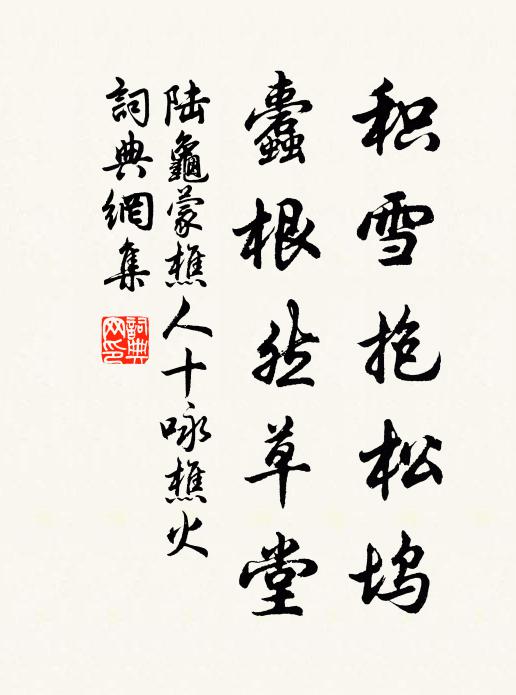 积雪抱松坞
蠹根然草堂
陆龜蒙樵人十咏樵火
詞典網集
詞典网印